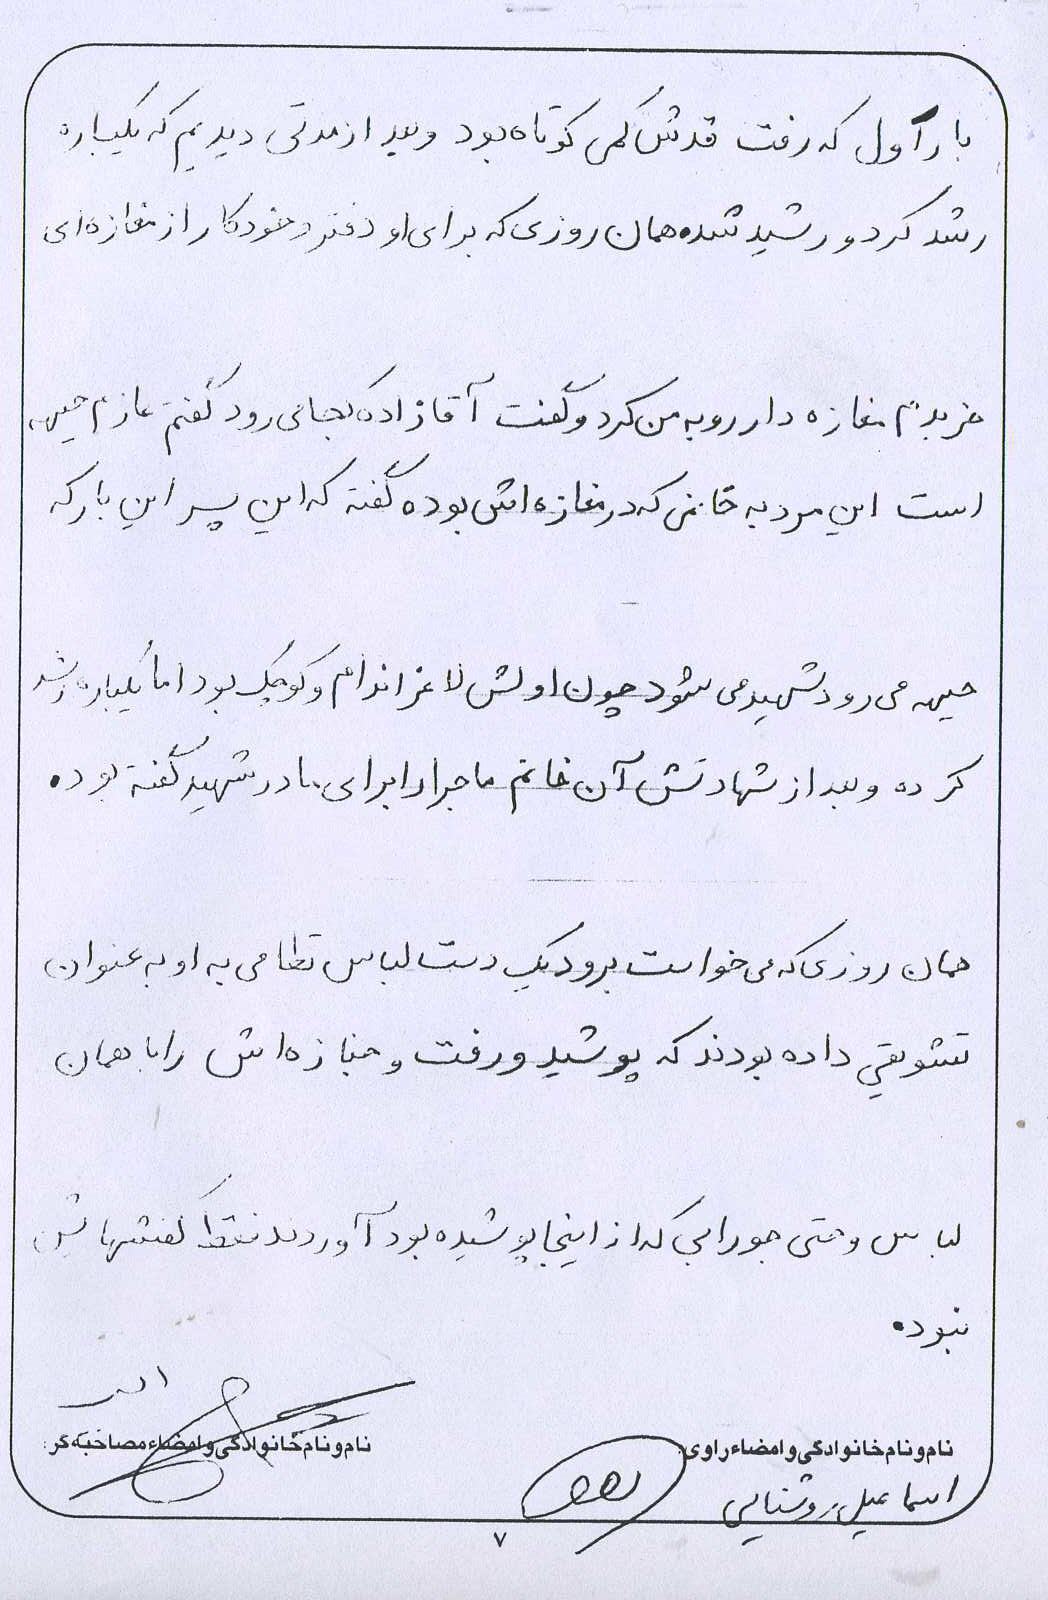 بار اول که رفت قدش کمی کوتاه بود و بعد از مدتی دیدیم که یکباره
رشد کرد و رشید شده همان روزی که برای او دفتر و خودکار از مغازه ای
خریدم مغازه دار رو به من کرد و گفت آقازاده کجا می رود گفتم عازم جبهه
است این مرد به خانمی که در مغازه اش بوده گفته که این پسر این بار که
جبهه می رود شهید می شود چون اولش لاغر اندام و کوچک بود اما یکباره رشد
کرده و بعد از شهادتش آن خانم ماجرا را برای مادر شهید گفته بوده
همان روزی که می خواست برود یک دست لباس نظامی به او به عنوان
تشویقی داده بودند که پوشید و رفت و جنازه اش را با همان
لباس و حتی جورابی که از اینجا پوشیده بود آوردند فقط کفشهایش
نبوده
نام و نام خانوادگی و امضاء راوی:
نام و نام خانوادگی و امضاء مصاحبه گر:
اسماعیل روشنایی
۷